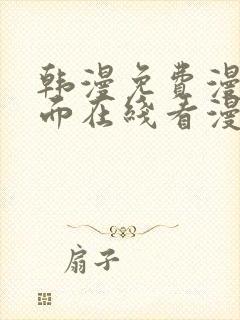 韩漫免费漫
而在线看漫
扇子